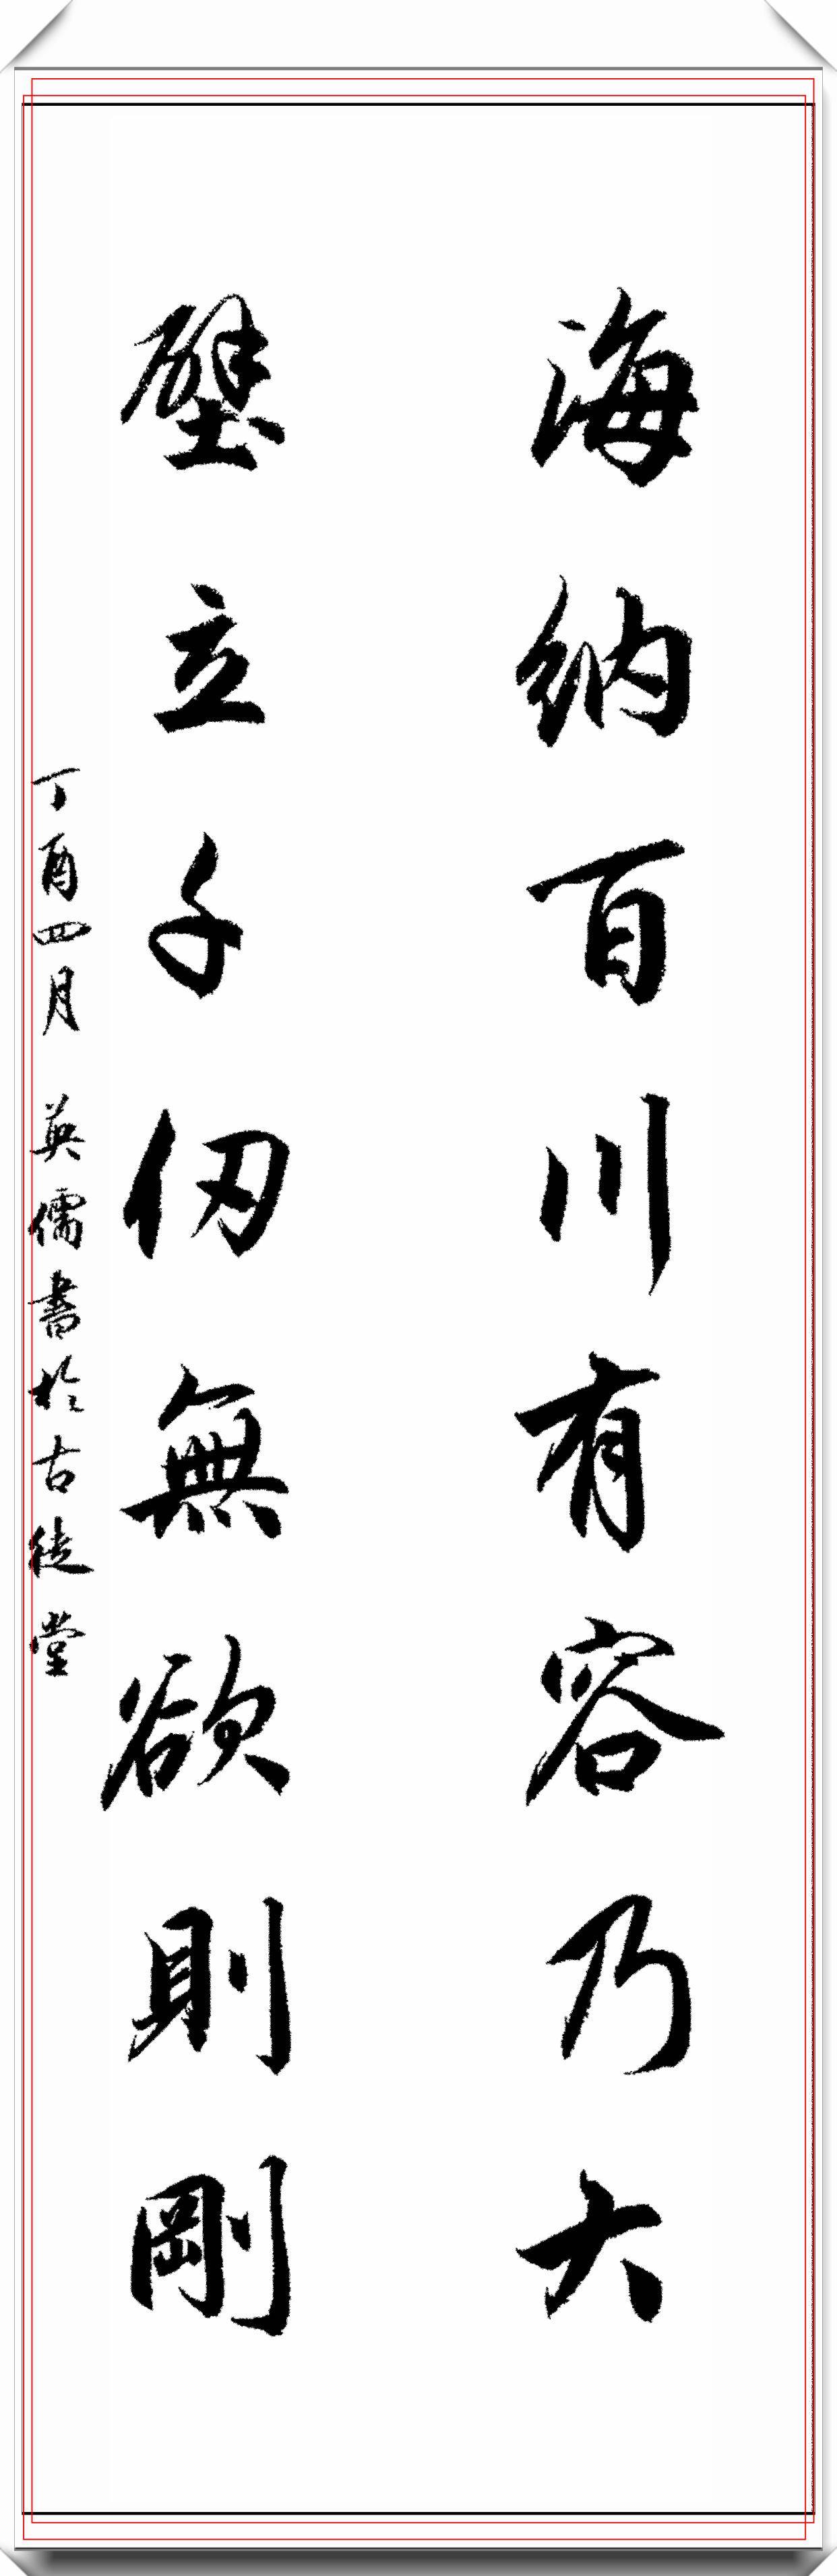 海納百川有容乃大
壁立千仞無欲則剛
丁酉四月 英儒書於古徒堂